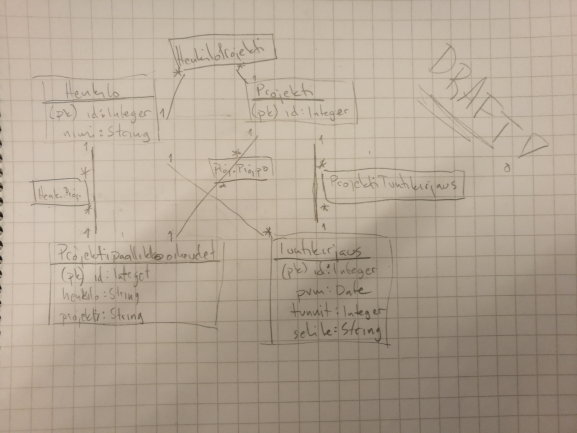 HenkiloProjekti
Henkilo
(pk) id: Integer
nimi: String
Projekti
(pk) id: Integer
DRAFT
1
*
*
1
1
1
1
1
*
*
1
Henk.Proj.
*
*
1
ProjektiTuntikirjaus
*
*
1
1
*
Projektipäällikkooikeudet
(pk) id: Integer
henkilo: String
projekti: String
Tuntikirjaus
(pk) id: Integer
pvm: Date
tunnit: Integer
selite: String